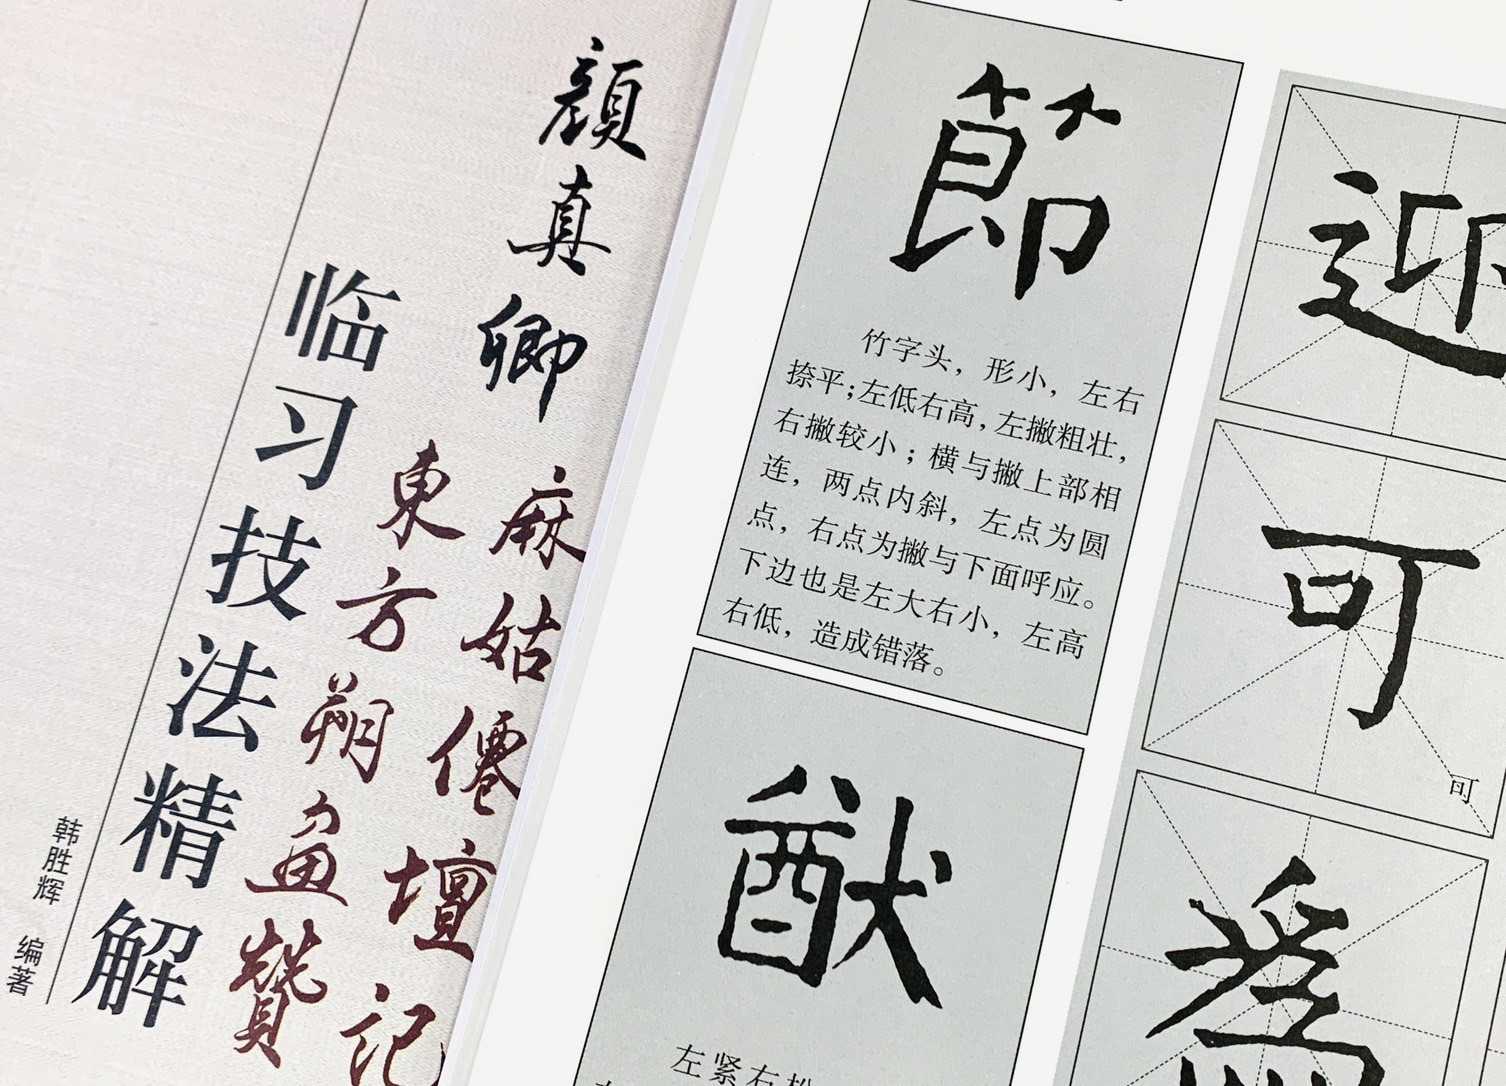 顔真卿
麻姑僊壇記
東方朔畫贊
临习技法精解
韩胜辉 编著
節
竹字头，形小，左右
捺平；左低右高，左撇粗壮，
右撇较小；横与撇上部相
连，两点内斜，左点为圆
点，右点为撇与下面呼应。
下边也是左大右小，左高
右低，造成错落。
猷
左紧右松
迎
可
可
爲